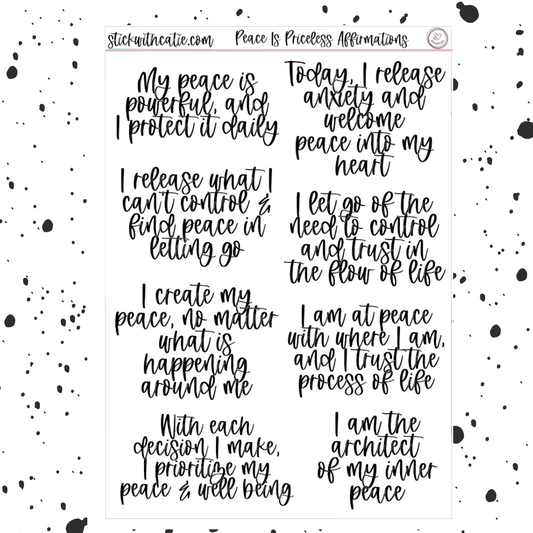 stickwithcatie.com
Peace Is Priceless Affirmations
My peace is
powerful, and
I protect it daily
Today, I release
anxiety and
welcome
peace into my
heart
I release what I
can't control &
find peace in
letting go
I let go of the
need to control
and trust in
the flow of life
I create my
peace, no matter
what is
happening
around me
I am at peace
with where I am,
and I trust the
process of life
With each
decision I make,
I prioritize my
peace & well being
I am the
architect
of my inner
peace